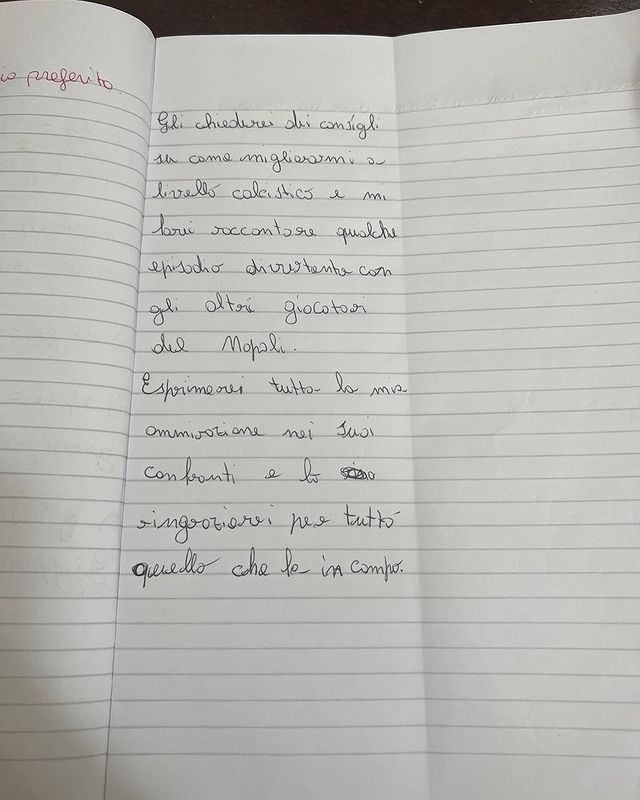 io preferito.
Gli chiederei dei consigli
su come migliorarmi a
livello calcistico e mi
farei raccontare qualche
episodio divertente con
gli altri giocatori
del Napoli.
Esprimerei tutta la mia
ammirazione nei suoi
confronti e lo
ringrazierei per tutto
quello che fa in campo.